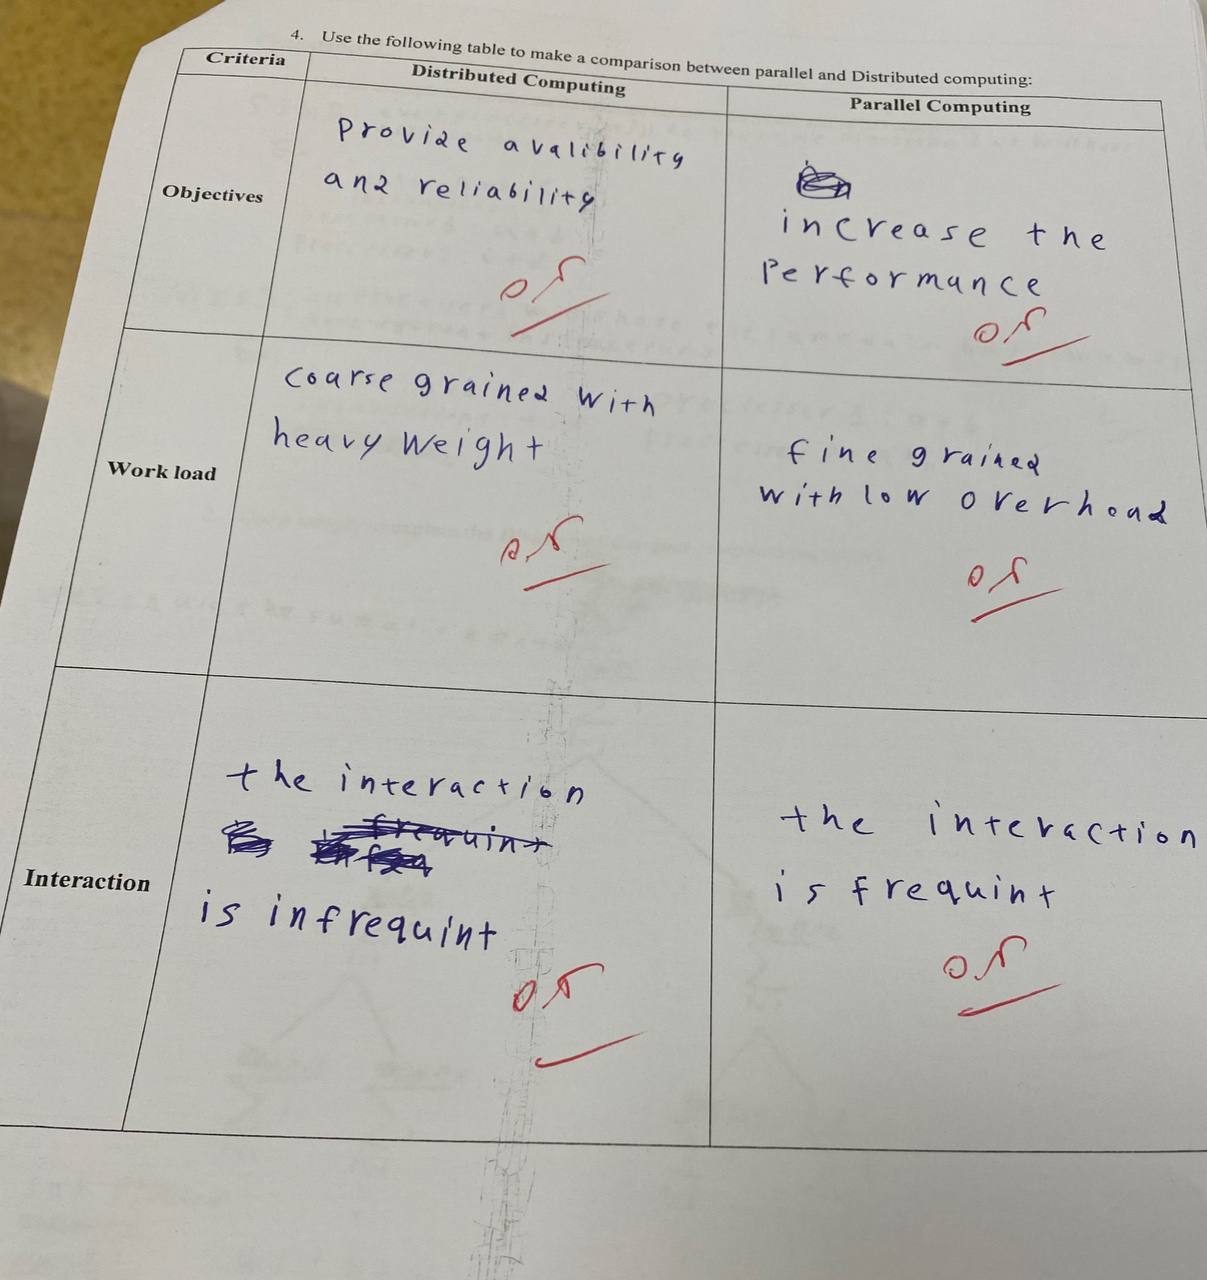 4. Use the following table to make a comparison between parallel and Distributed computing:
Criteria
Distributed Computing
Parallel Computing
Objectives
Provide avalibility
and reliability
0.5
increase the
Performance
0.5
Work load
coarse grained with
heavy weight
0.5
fine grained
with low overhead
0.5
Interaction
the interaction
is infrequint
0.5
the interaction
is frequint
0.5